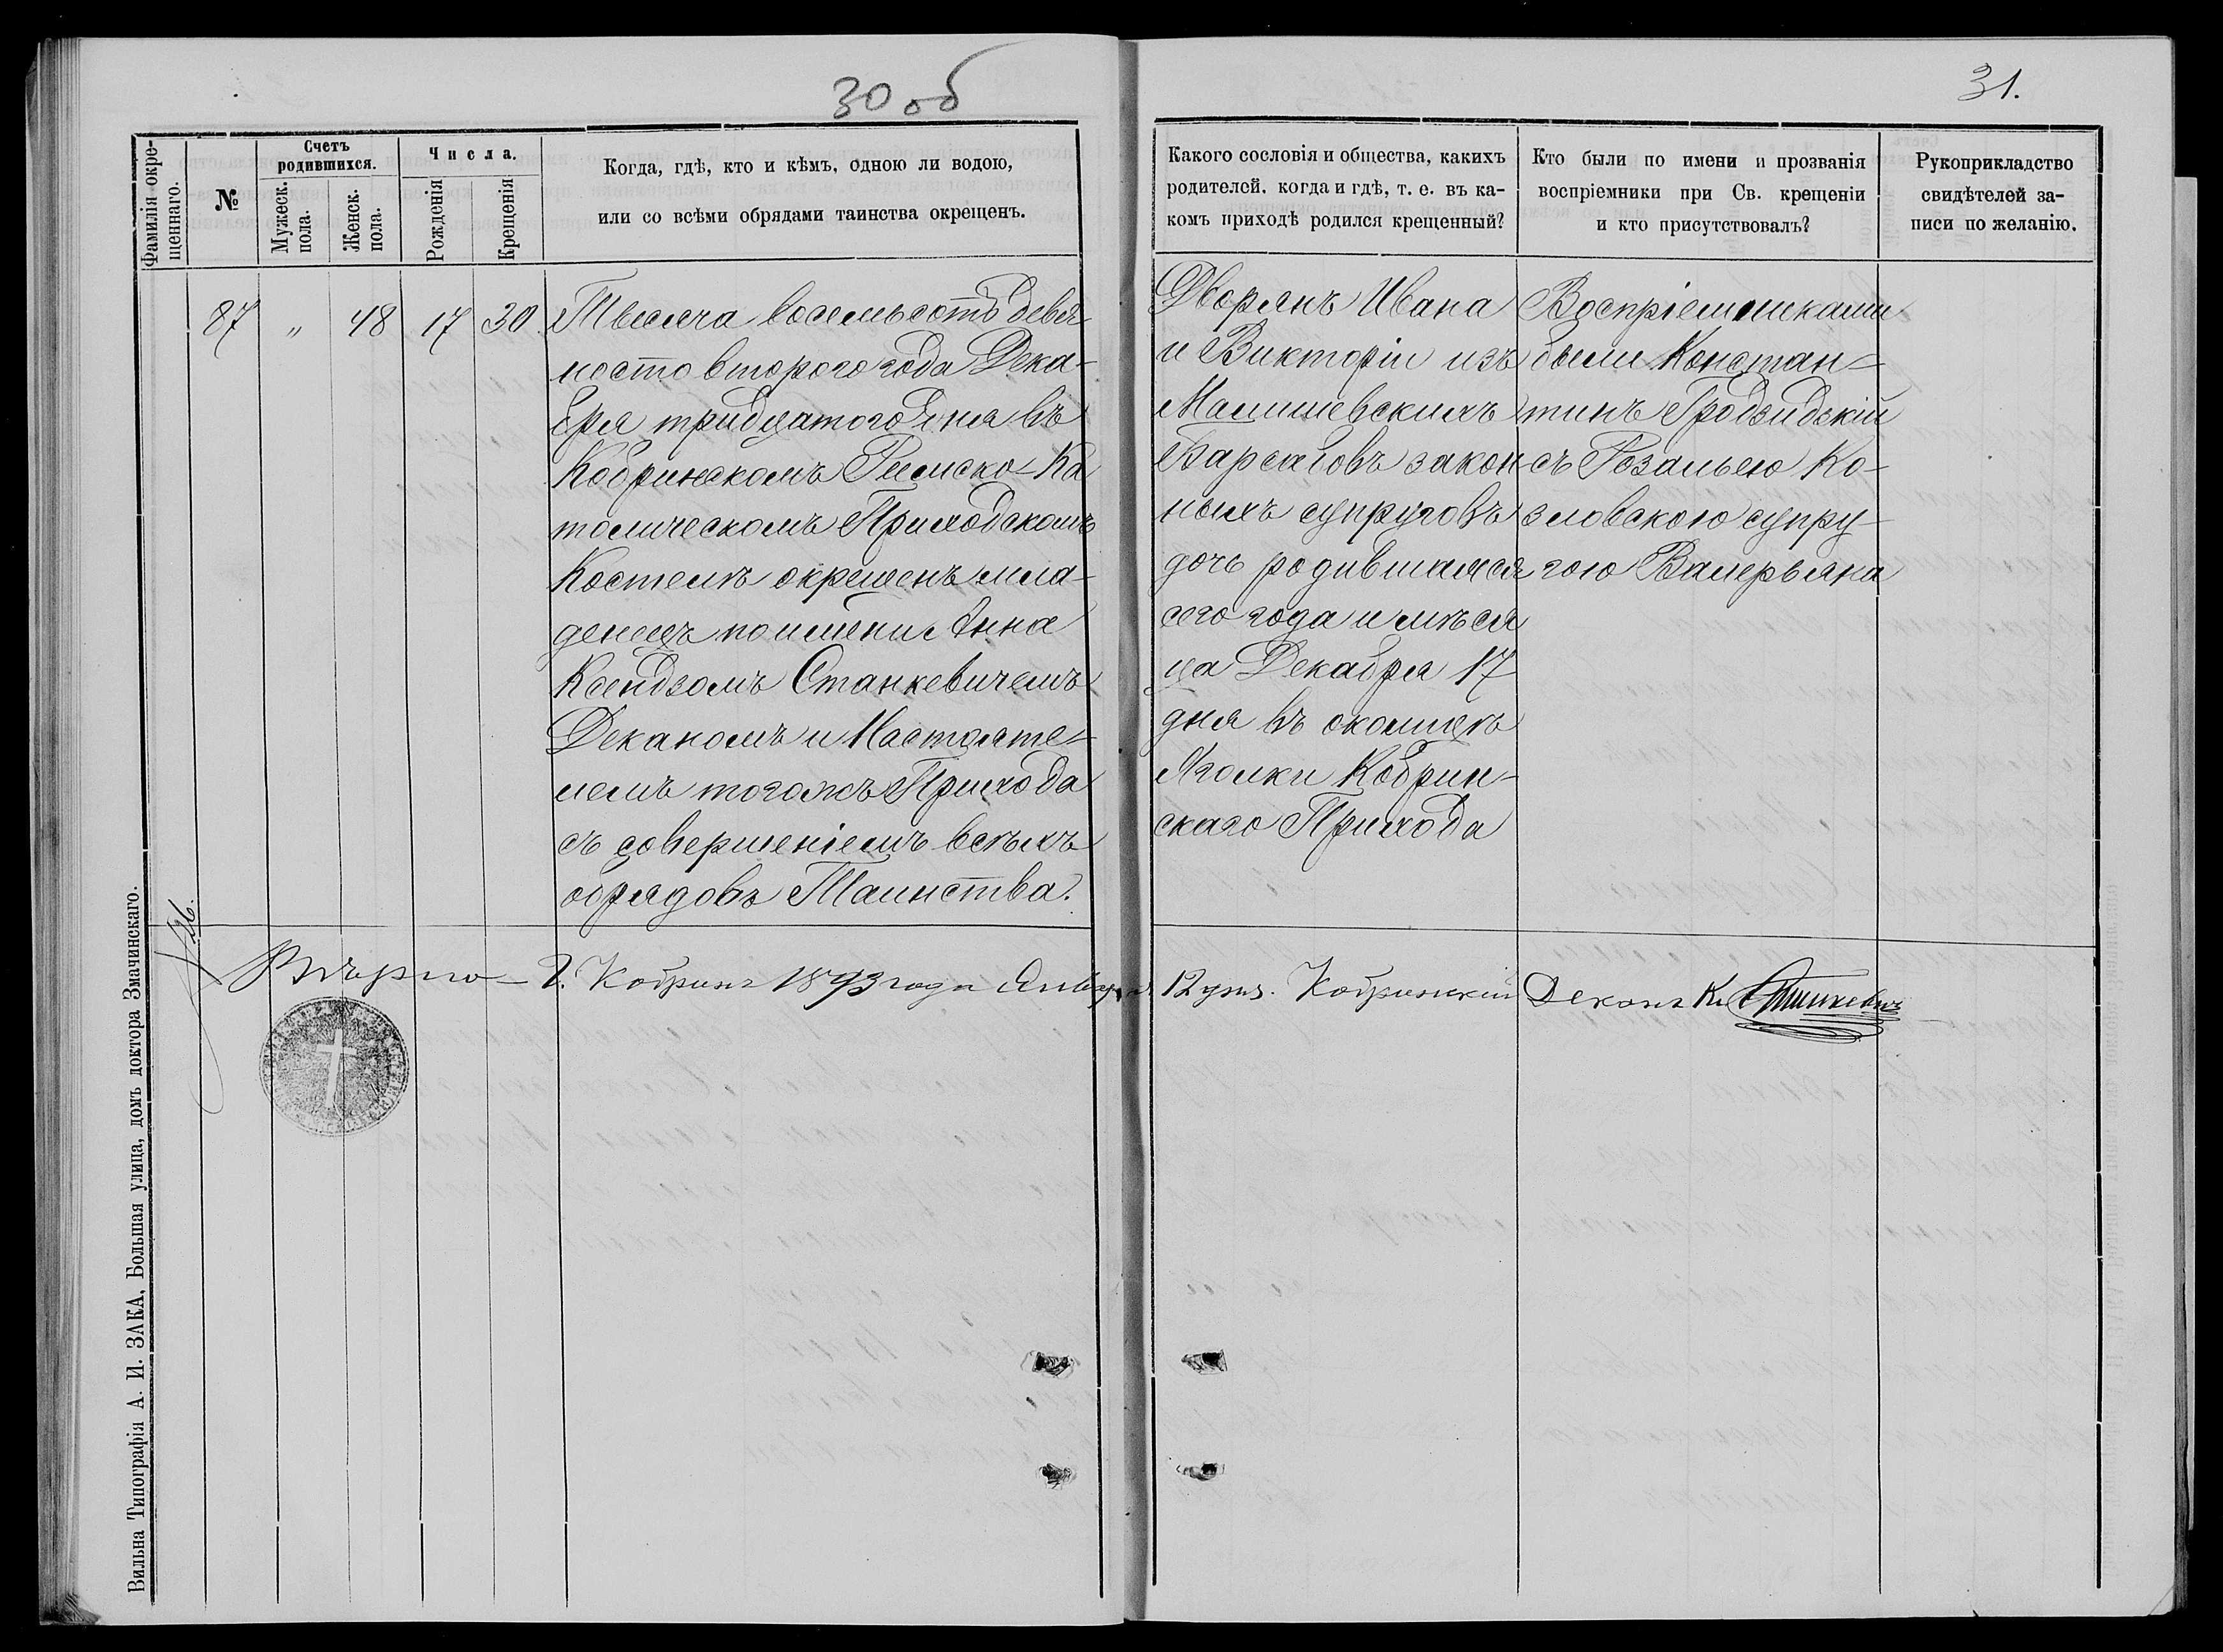 30 об
31.
Фамилія окре-
щеннаго.
№
Счетъ
родившихся.
Мужеск.
пола.
Женск.
пола.
Числа.
Рожденія
Крещенія
Когда, гдѣ, кто и кѣмъ, одною ли водою,
или со всѣми обрядами таинства окрещенъ.
Какого сословія и общества, какихъ
родителей. когда и гдѣ, т. е. въ ка-
комъ приходѣ родился крещенный?
Кто были по имени и прозванія
воспріемники при Св. крещеніи
и кто присутствовалъ?
Рукоприкладство
свидѣтелей за-
писи по желанію.
87 " 48 17 30
Тысяча восемьсотъ девя
носто второго года Дека-
бря тридцатого дня въ
Кобринскомъ Римско-Ка
толическомъ Приходскомъ
Костелѣ окрещенъ мла-
денецъ по имени Анна
Ксендзомъ Станкевичемъ
Деканомъ и Настояте-
лемъ тогожъ Прихода
съ совершеніемъ всѣхъ
обрядовъ Таинства.
Дворянъ Ивана
и Викторіи изъ
Малишевскихъ
Барсаговъ закон-
ныхъ супруговъ
дочь родившаяся
сего года и мѣся
ца Декабря 17
дня въ околицѣ
Яголки Кобрин-
скаго Прихода
Воспріемниками
были Констан-
тинъ Гродзидскій
съ Розальею Ко-
зловскою супру-
гою Валерьяна
Вѣрно - Г. Кобринъ 1893 года Января 12 дня. Кобринскій Деканъ Кс. Станкевичъ
Вильна Типографія А. И. ЗАКА, Большая улица, домъ доктора Змачинскаго.